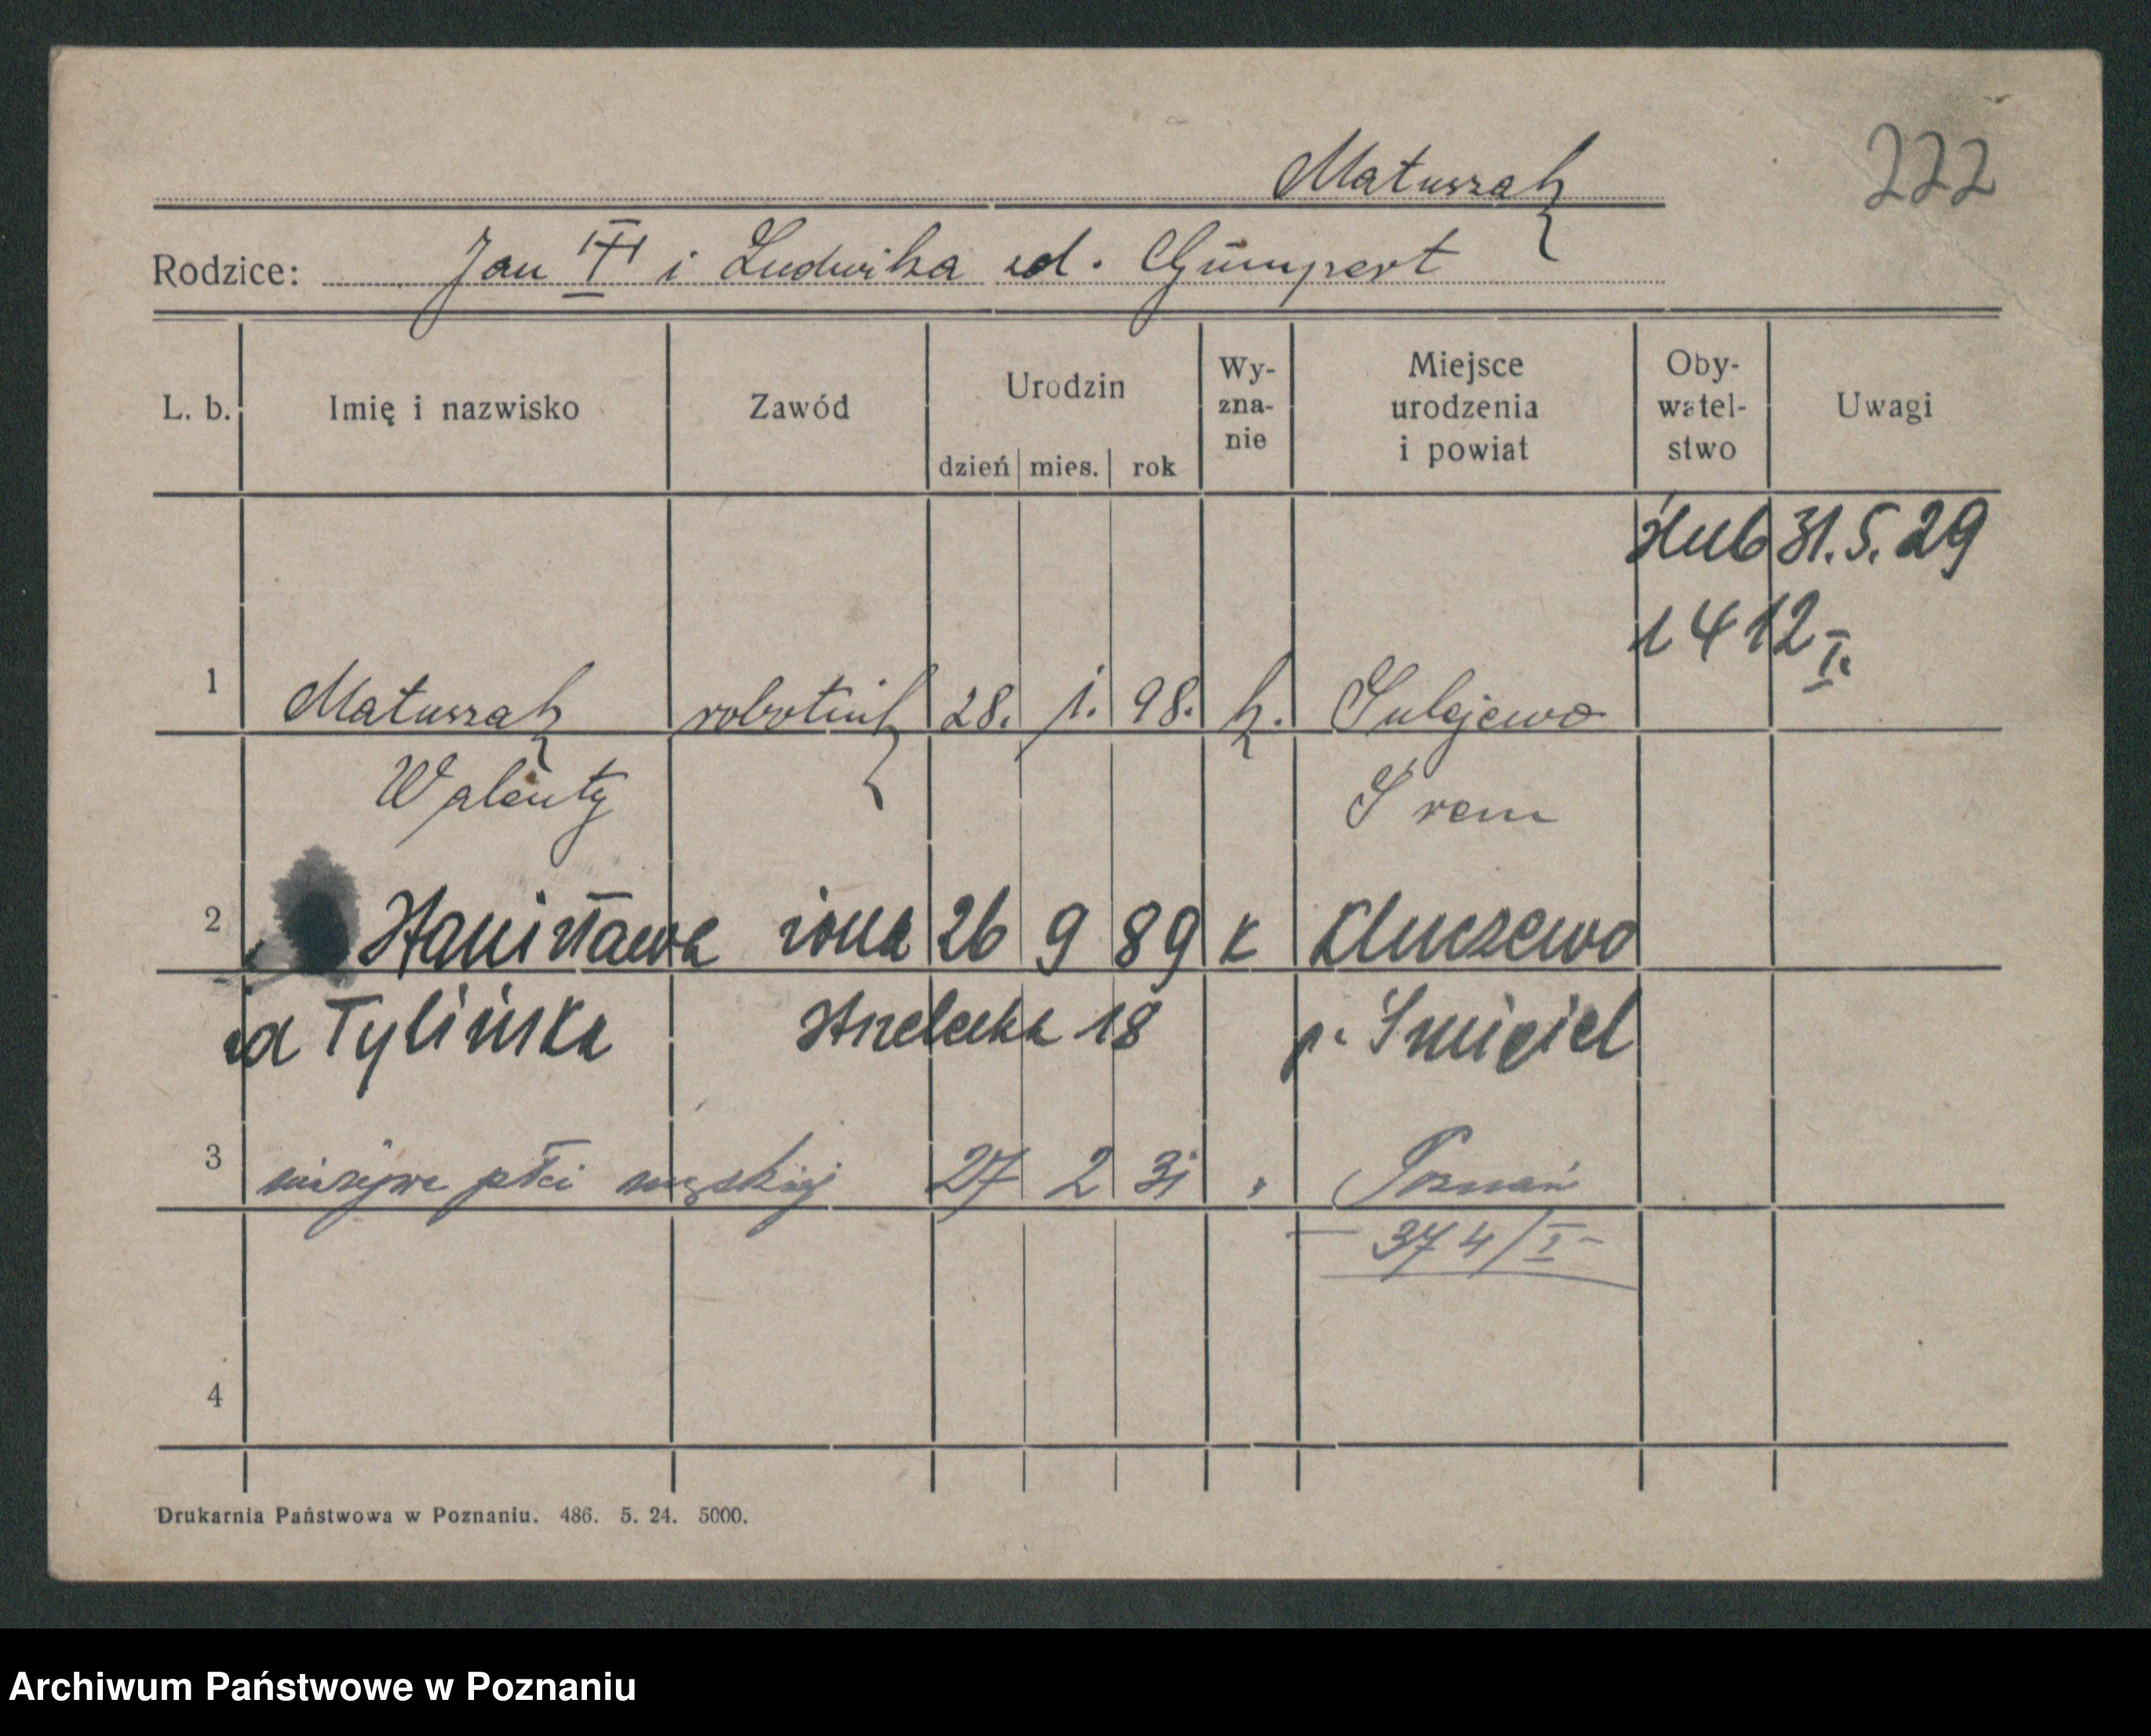 Matuszak
222
Rodzice: Jan i Ludwika zd. Gumpert
L. b. Imię i nazwisko Zawód Urodzin dzień mies. rok Wy-zna-nie Miejsce urodzenia i powiat Oby-watel-stwo Uwagi
ślub 31.5.29
1412 I.
1 Matuszak robotnik 28. 1. 98. k. Sulejewo
Walenty Śrem
2 Stanisława żona 26 9 89 k Kluczewo
zd Tylińska Strzelecka 18 p. Śmigiel
3 nieżywe płci męskiej 27 2 31 " Poznań
374/I
4
Drukarnia Państwowa w Poznaniu. 486. 5. 24. 5000.
Archiwum Państwowe w Poznaniu